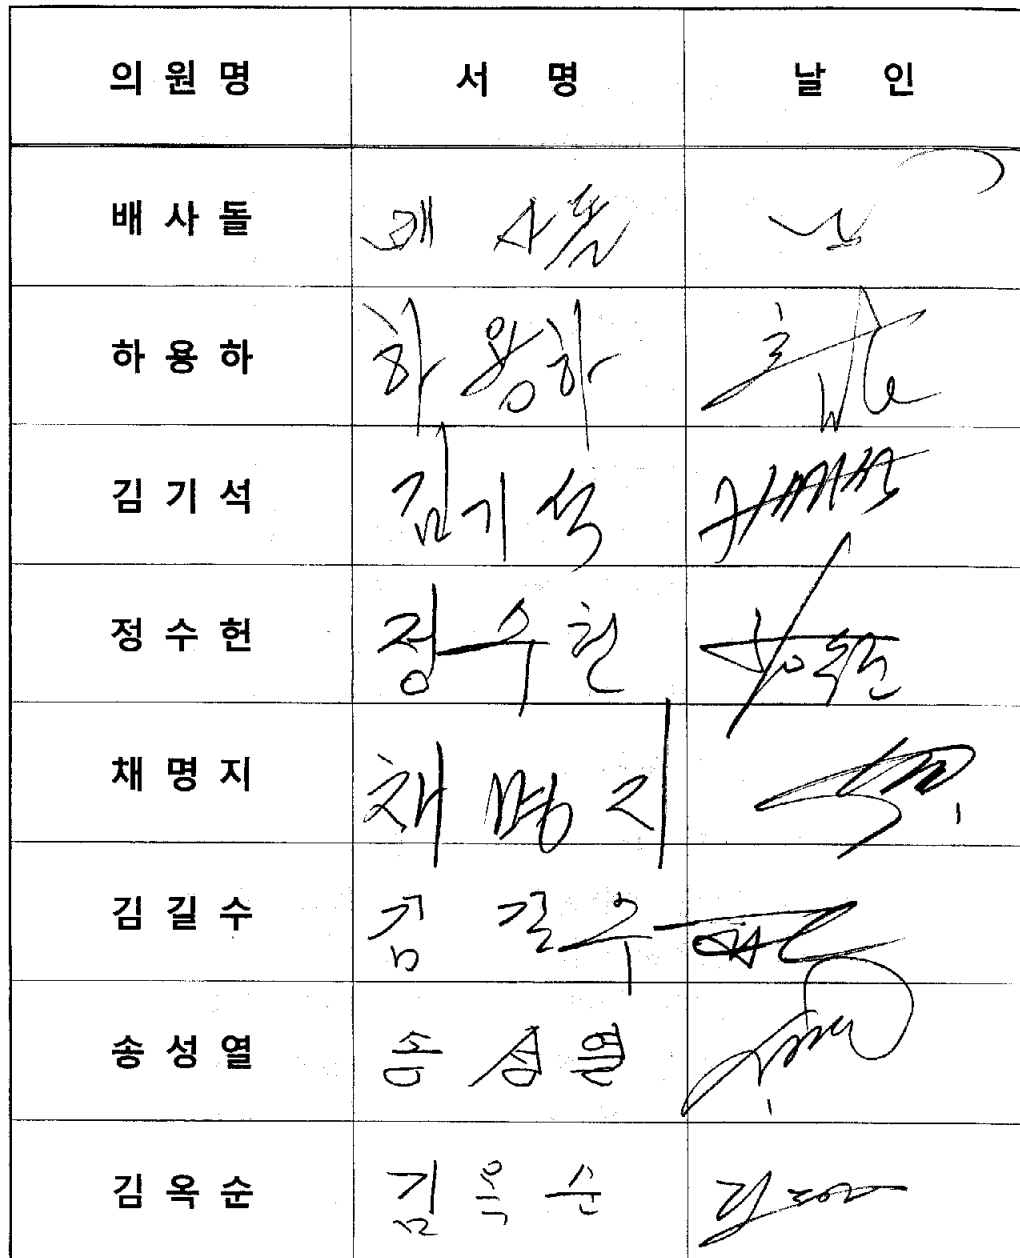 의원명 서 명 날 인
배사돌 배 사돌
하용하 하용하
김기석 김기석
정수헌 정수헌
채명지 채명지
김길수 김 길수
송성열 송성열
김옥순 김옥순